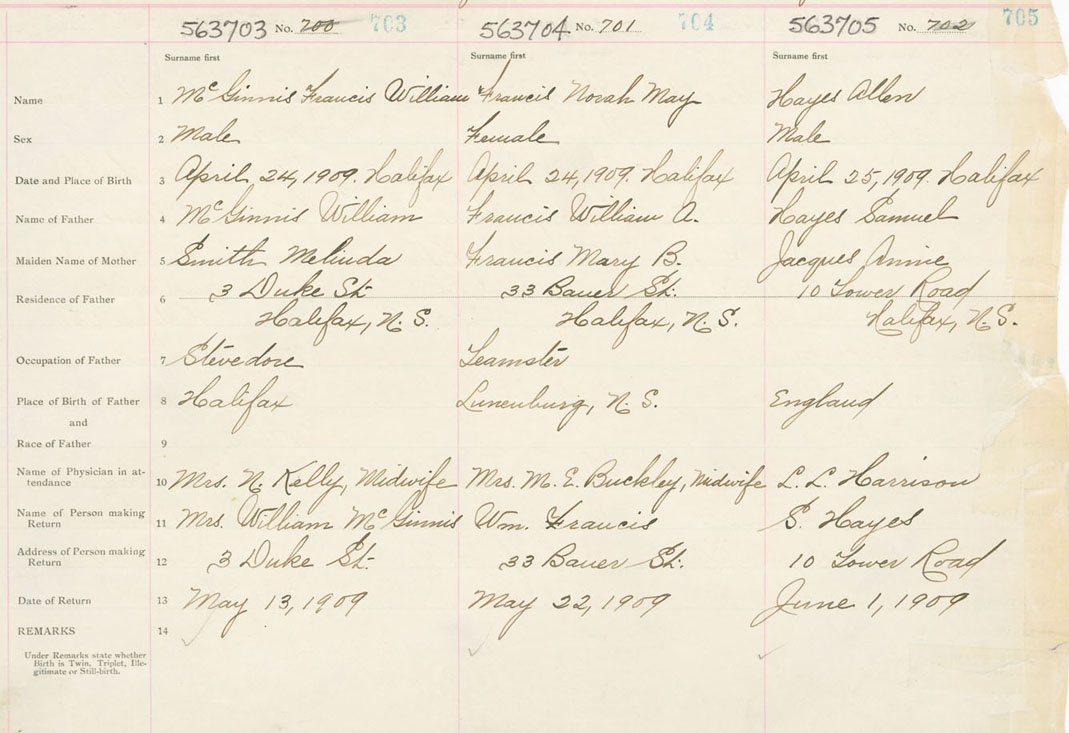 563703 No. 700 703 563704 No. 701 704 563705 No. 702 705
Surname first Surname first Surname first
Name 1 McGinnis Francis William Francis Norah May Hayes Allen
Sex 2 Male Female Male
Date and Place of Birth 3 April 24, 1909. Halifax April 24, 1909. Halifax April 25, 1909. Halifax
Name of Father 4 McGinnis William Francis William A. Hayes Samuel
Maiden Name of Mother 5 Smith Melinda Francis Mary B. Jacques Annie
Residence of Father 6 3 Duke St. 33 Bauer St. 10 Tower Road
Halifax, N.S. Halifax, N.S. Halifax, N.S.
Occupation of Father 7 Stevedore Teamster
Place of Birth of Father 8 Halifax Lunenburg, N.S. England
and
Race of Father 9
Name of Physician in at-
tendance 10 Mrs. N. Kelly, Midwife Mrs. M. E. Buckley, Midwife L. L. Harrison
Name of Person making
Return 11 Mrs. William McGinnis Wm. Francis S. Hayes
Address of Person making
Return 12 3 Duke St. 33 Bauer St. 10 Tower Road
Date of Return 13 May 13, 1909 May 22, 1909 June 1, 1909
REMARKS 14
Under Remarks state whether
Birth is Twin, Triplet, Ille-
gitimate or Still-birth.